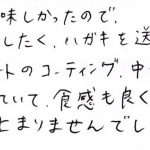 味しかったので、
したく、ハガキを送
ートのコーティング、中
ていて、食感も良く
とまりませんでし